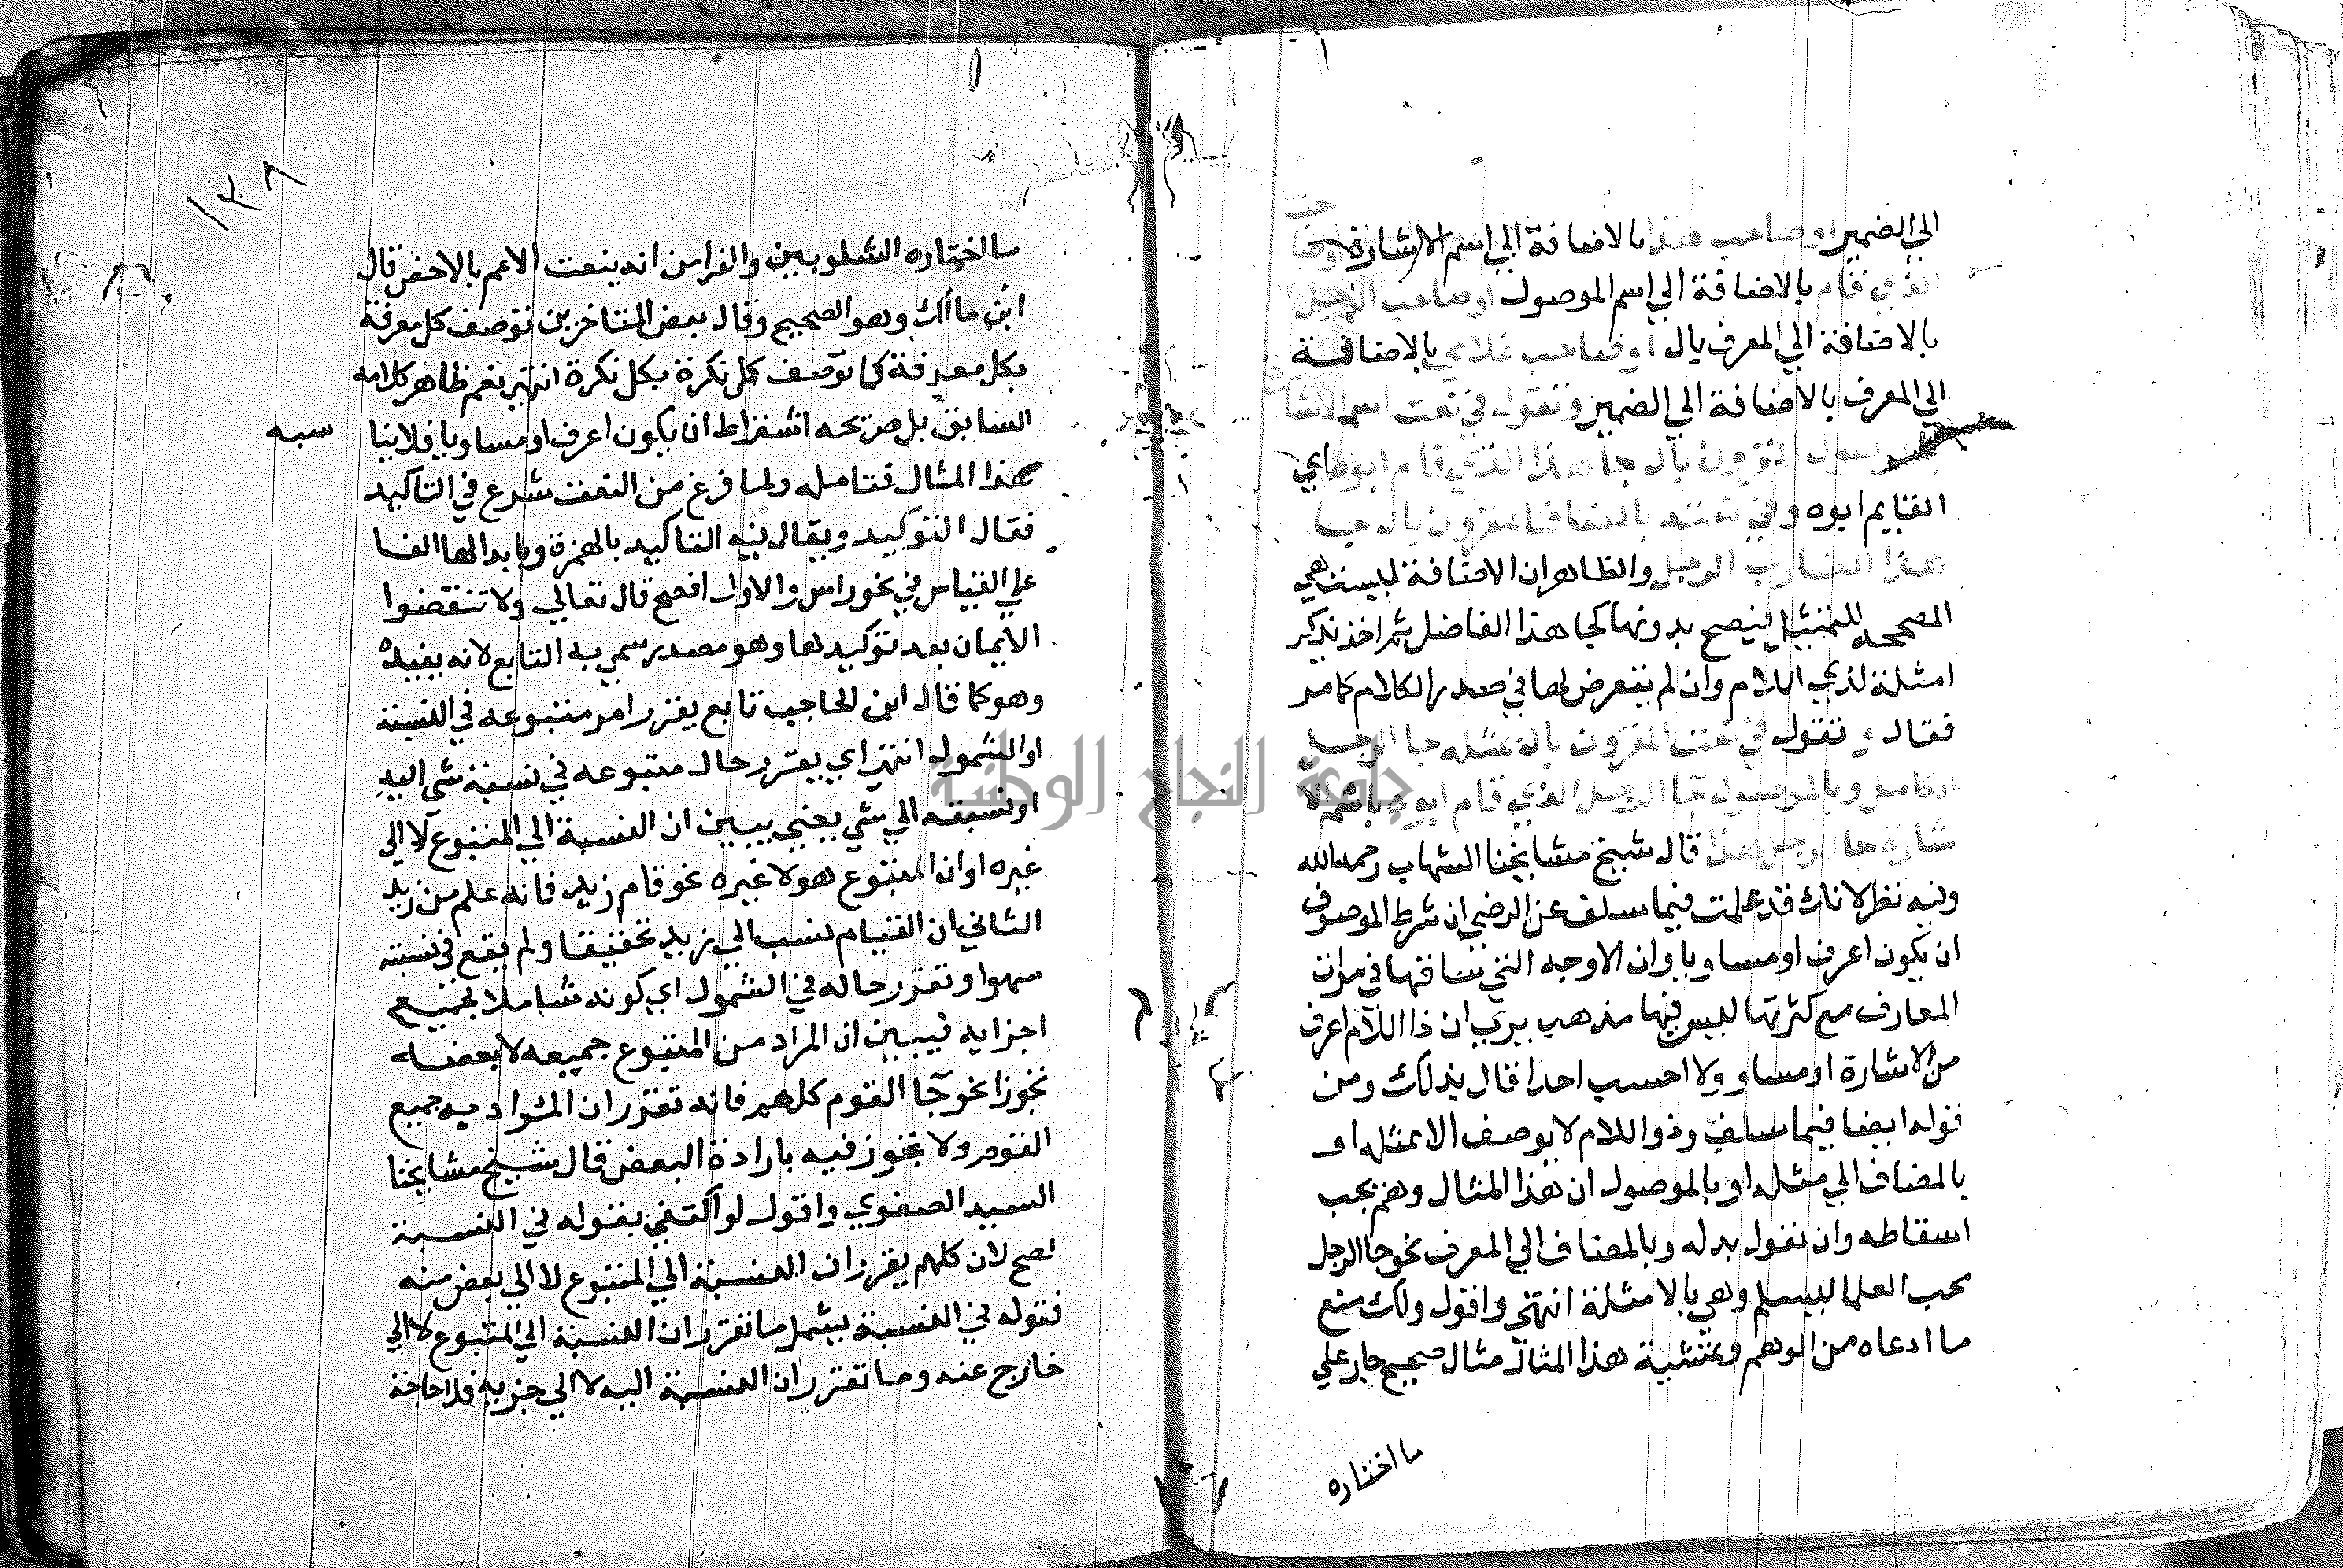 الي الضمير او صاحب هذا بالاضافة الي اسم الاشارة او صا
حب
الذي قام بالاضافة الي اسم الموصول او صاحب الرجل
بالاضافة الي المعرف بال او صاحب غلامي بالاضافة
الي المعرف بالاضافة الي الضمير وتقول في نعت اسم الاشا
المقرون بال جا هذا الذي قام ابوه اي
القايم ابوه وفي نعته بالمضاف المقرون بال جا
هذا الضارب الرجل والظاهر ان الاضافة ليست هي
المصححه للتمثيل فيصح بدونها كجا هذا الفاضل ثم اخذ يذكر
امثلة لذي اللام وان لم يتعرض لها في صدر الكلام كما مر
فقال و تقول في نعت المقرون بال بمثله جا الرجل
الكامل وبالموصول جا الرجل الذي قام ابوه باسم الا
شارة جا الرجل هذا قال شيخ مشايخنا الشهاب رحمه الله
وفيه نظر لانك قد علمت فيما سلف عن الرضي ان شرط الموصوف
ان يكون اعرف او مساويا وان الاوجه التي ساقها في مراتب
المعارف مع كثرتها ليس فيها مذهب يري ان ذا اللام اعرف
من الاشارة او مساو ولا احسب احدا قال بذلك ومن
قوله ايضا فيما سلف وذو اللام لا يوصف الا بمثله او
بالمضاف الي مثله او بالموصول ان هذا المثال وهم يجب
اسقاطه وان نقول بدله وبالمضاف الي المعرف نحو جا الرجل
محب العلم ليسلم وهي بالامثلة انتهي واقول ولك منع
ما ادعاه من الوهم وتمشية هذا المثال مثال صحيح جار علي
ما اختاره
١٣٨
ما اختاره الشلوبين والفرا من انه ينعت الاعم بالاخص قال
ابن مالك وهو الصحيح وقال بعض المتاخرين توصف كل معرفة
بكل معرفة كما توصف كل نكرة بكل نكرة انتهي نعم ظاهر كلامه
السابق بل صريحه اشتراط ان يكون اعرف او مساويا فلا ينا
سبه
هذا المثال فتامله ولما فرغ من النعت شرع في التاكيد
فقال التوكيد ويقال فيه التاكيد بالهمزة وبابدالها الفا
علي القياس في نحو راس والاول افصح قال تعالي ولا تنقضوا
الايمان بعد توكيدها وهو مصدر سمي به التابع لانه يفيده
وهو كما قال ابن الحاجب تابع يقرر امر متبوعه في النسبة
او الشمول انتهي اي يقرر حال متبوعه في نسبة شي اليه
او نسبته الي شي يعني يبين ان النسبة الي المتبوع لا الي
غيره او ان المتبوع هو لا غيره نحو قام زيد فانه علم من زيد
الثاني ان القيام نسب الي زيد تحقيقا ولم يقع في نسبته
سهوا وتقرر حاله في الشمول اي كونه شاملا لجميع
اجزايه فيبين ان المراد من المتبوع جميعه لا بعضه
تجوزا نحو جا القوم كلهم فانه تقرر ان المراد به جميع
القوم ولا تجوز فيه بارادة البعض قال شيخ مشايخنا
السيد الصفوي واقول لو اكتفي بقوله في النسبة
لصح لان كلهم يقرر ان النسبة الي المتبوع لا الي بعض منه
فقوله في النسبة يشمل ما تقرر ان النسبة الي المتبوع لا الي
خارج عنه وما تقرر ان النسبة اليه لا الي جزيه فلا حاجة
جامعة النجاح الوطنية